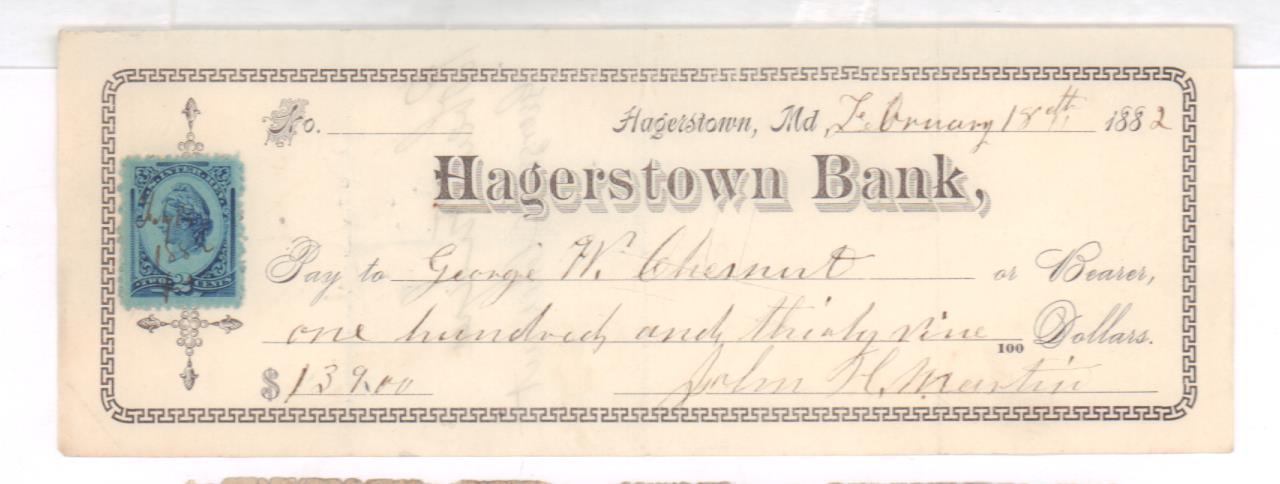 No. Hagerstown, Md, February 18th 1882
Hagerstown Bank,
U.S. INTER. REV.
1882
TWO 2 CENTS
Pay to George W. Chesnut or Bearer,
one hundred and thirty nine 100 Dollars.
$139.00 John H. Martin